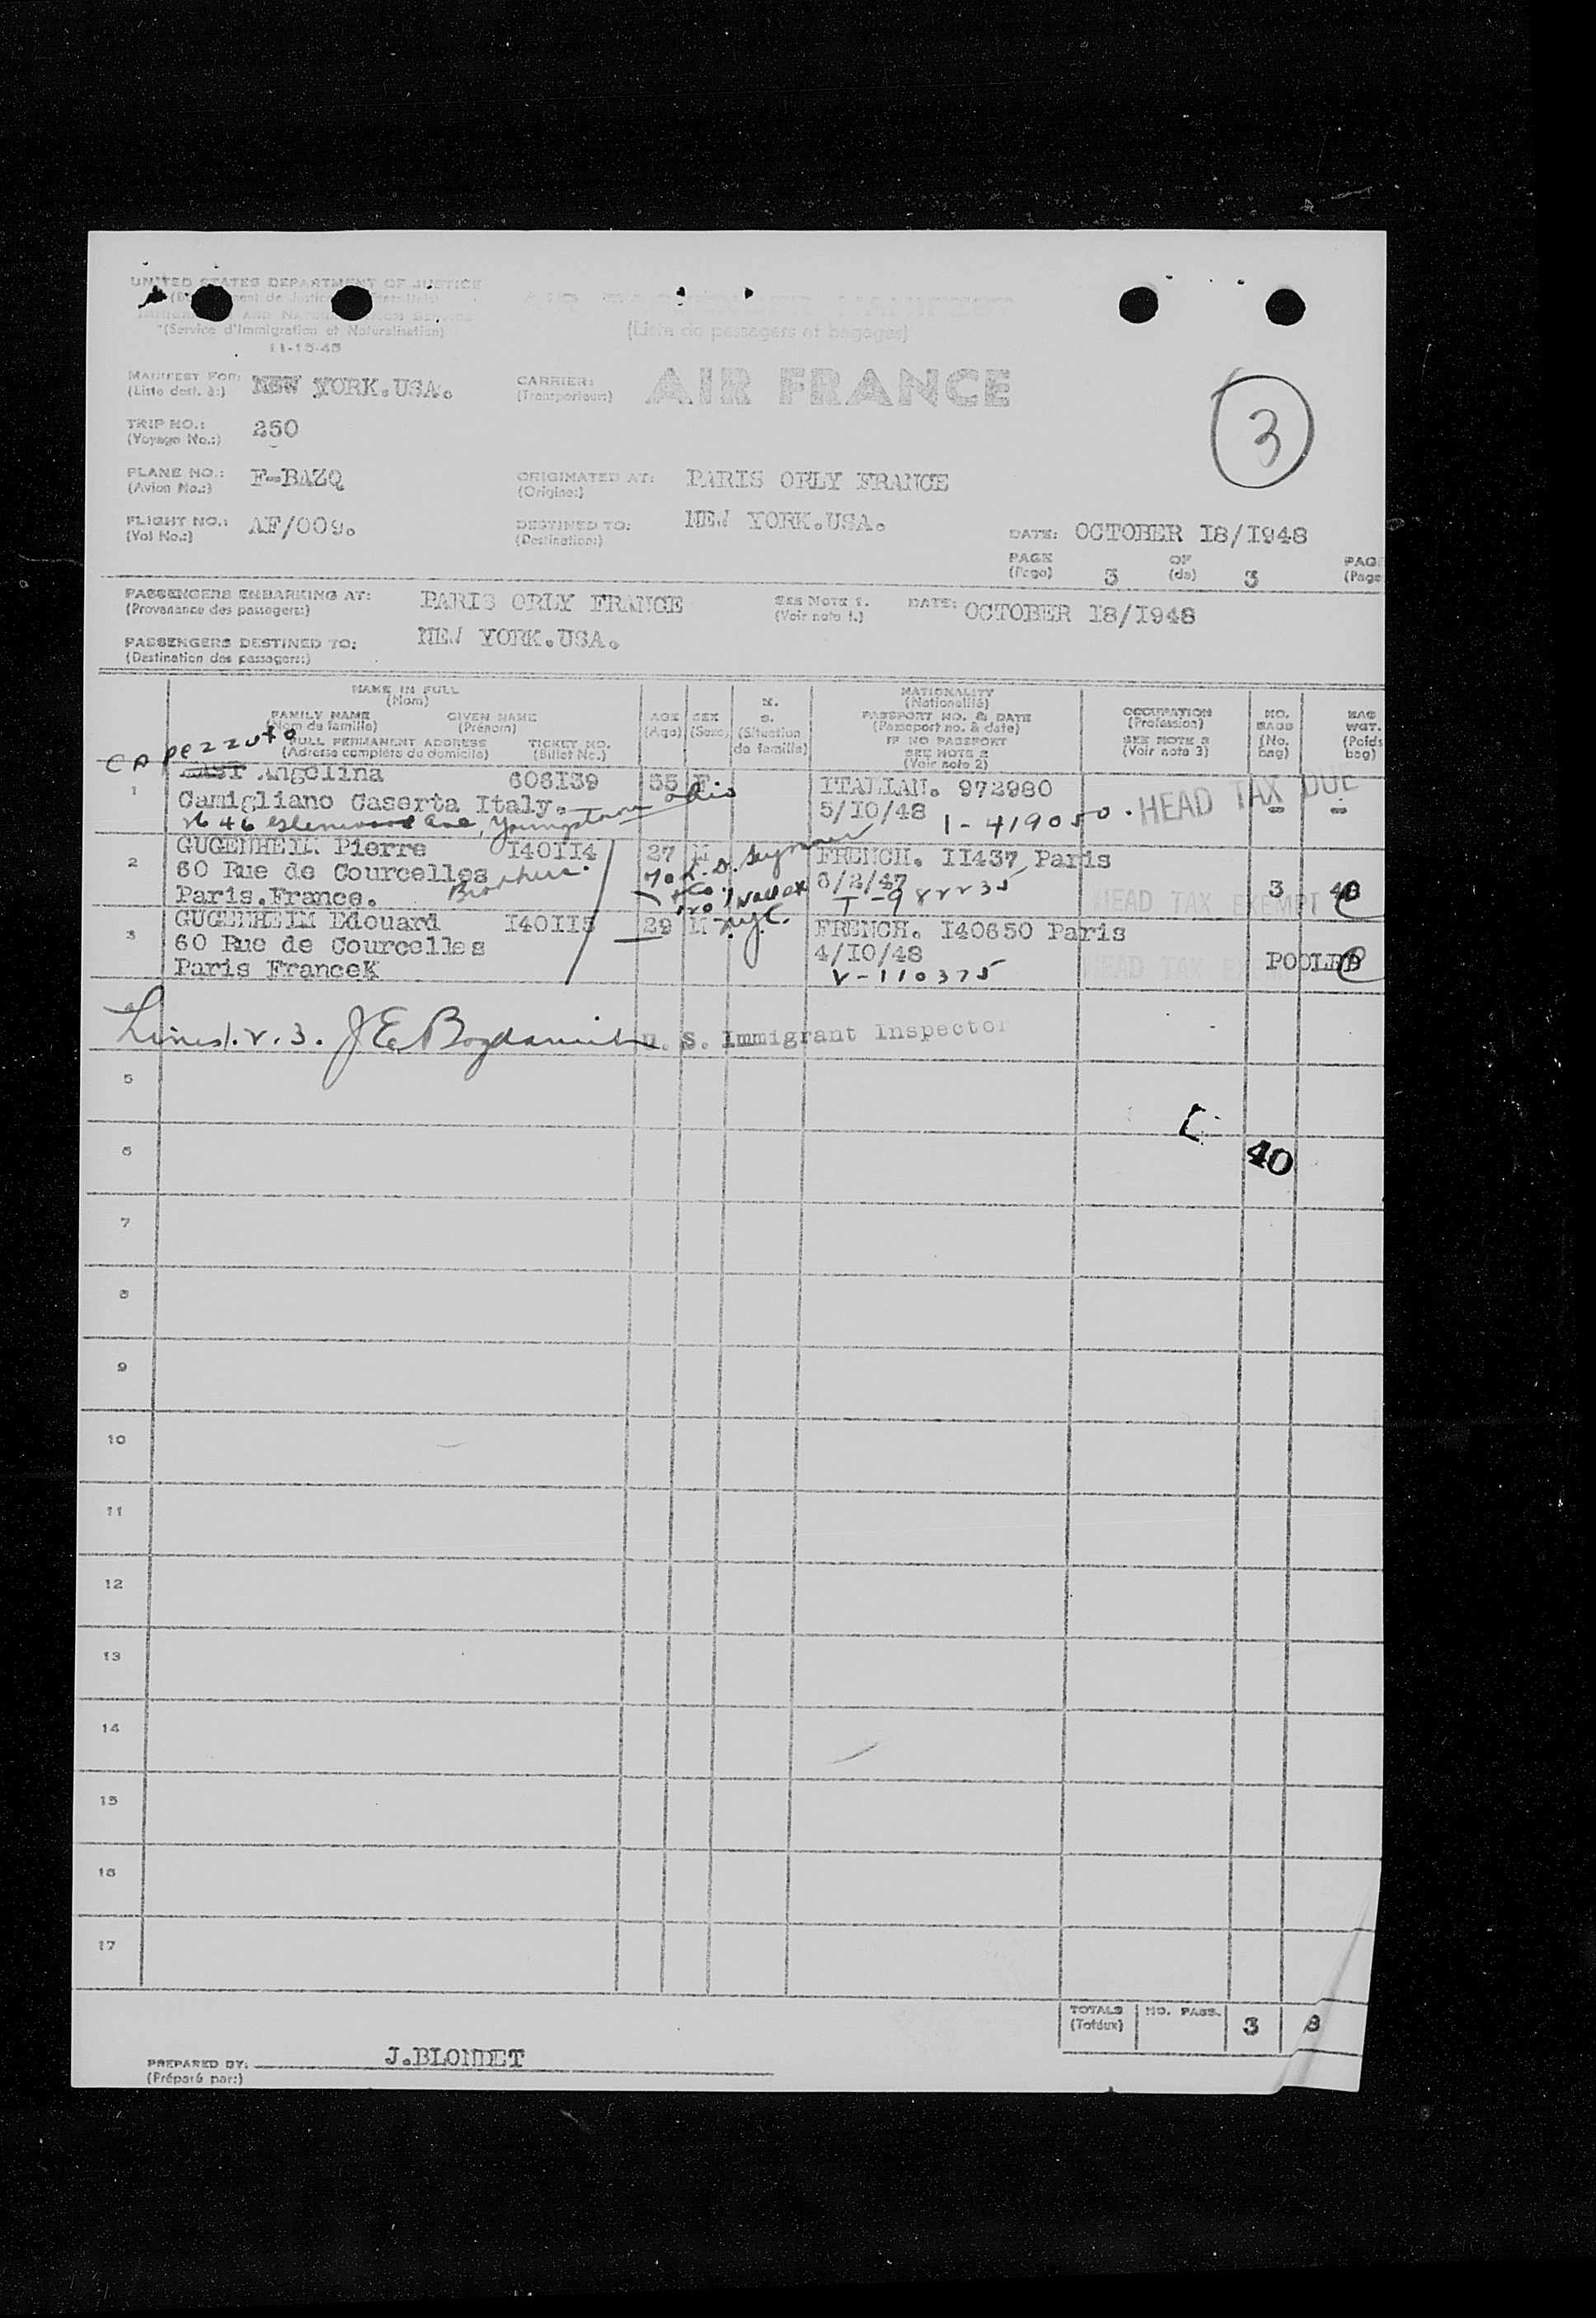 UNITED STATES DEPARTMENT OF JUSTICE
de Justice
AND NATURALIZATION SERVICE
(Service d'Immigration et Naturalisation)
11-15-45
(Liste de passagers et bagages)
MANIFEST FOR: NEW YORK.USA.
(Liste dest. à:)
CARRIER: AIR FRANCE
(Transporteur:)
3
TRIP NO.: 250
(Voyage No.:)
PLANE NO.: F-BAZQ
(Avion No.:)
ORIGINATED AT: PARIS ORLY FRANCE
(Origine:)
FLIGHT NO.: AF/009.
(Vol No.:)
DESTINED TO: NEW YORK.USA.
(Destination:)
DATE: OCTOBER I8/I948
PAGE 3 OF 3 PAG
(Page) (de) (Page
PASSENGERS EMBARKING AT: PARIS ORLY FRANCE
(Provenance des passagers:)
SEE NOTE 1.
(Voir note 1.)
DATE: OCTOBER I8/I948
PASSENGERS DESTINED TO: NEW YORK.USA.
(Destination des passagers:)
NAME IN FULL
(Nom)
FAMILY NAME GIVEN NAME
(Nom de famille) (Prénom)
FULL PERMANENT ADDRESS TICKET NO.
(Adresse complète du domicile) (Billet No.)
AGE
(Age)
SEX
(Sexe)
M.
S.
(Situation
de famille)
NATIONALITY
(Nationalité)
PASSPORT NO. & DATE
(Passeport no. & date)
IF NO PASSPORT
SEE NOTE 2
(Voir note 2)
OCCUPATION
(Profession)
SEE NOTE 3
(Voir note 3)
NO.
BAGS
(No.
bag)
BAG
WGT.
(Poids
bag)
Capezzuto
1 Angelina 606I39 55 F ITALIAN. 972980
Camigliano Caserta Italy. 5/IO/48 1-419050. HEAD TAX DUE
2646 Glenwood Ave, Youngstown Ohio
2 GUGENHEIM Pierre I40II4 27 M FRENCH. II437 Paris
60 Rue de Courcelles 6/2/47 3 40
Paris.France. Brothers. HEAD TAX EXEMPT
3 GUGENHEIM Edouard I40II5 29 M NYC. FRENCH. I40650 Paris
60 Rue de Courcelles 4/IO/48 HEAD TAX EX POOLED
Paris FranceK V-110375
Lines 1.2.3. U. S. Immigrant Inspector
5
6 40
7
8
9
10
11
12
13
14
15
16
17
TOTALS NO. PASS. 3
(Totaux)
PREPARED BY: J.BLONDET
(Préparé par:)